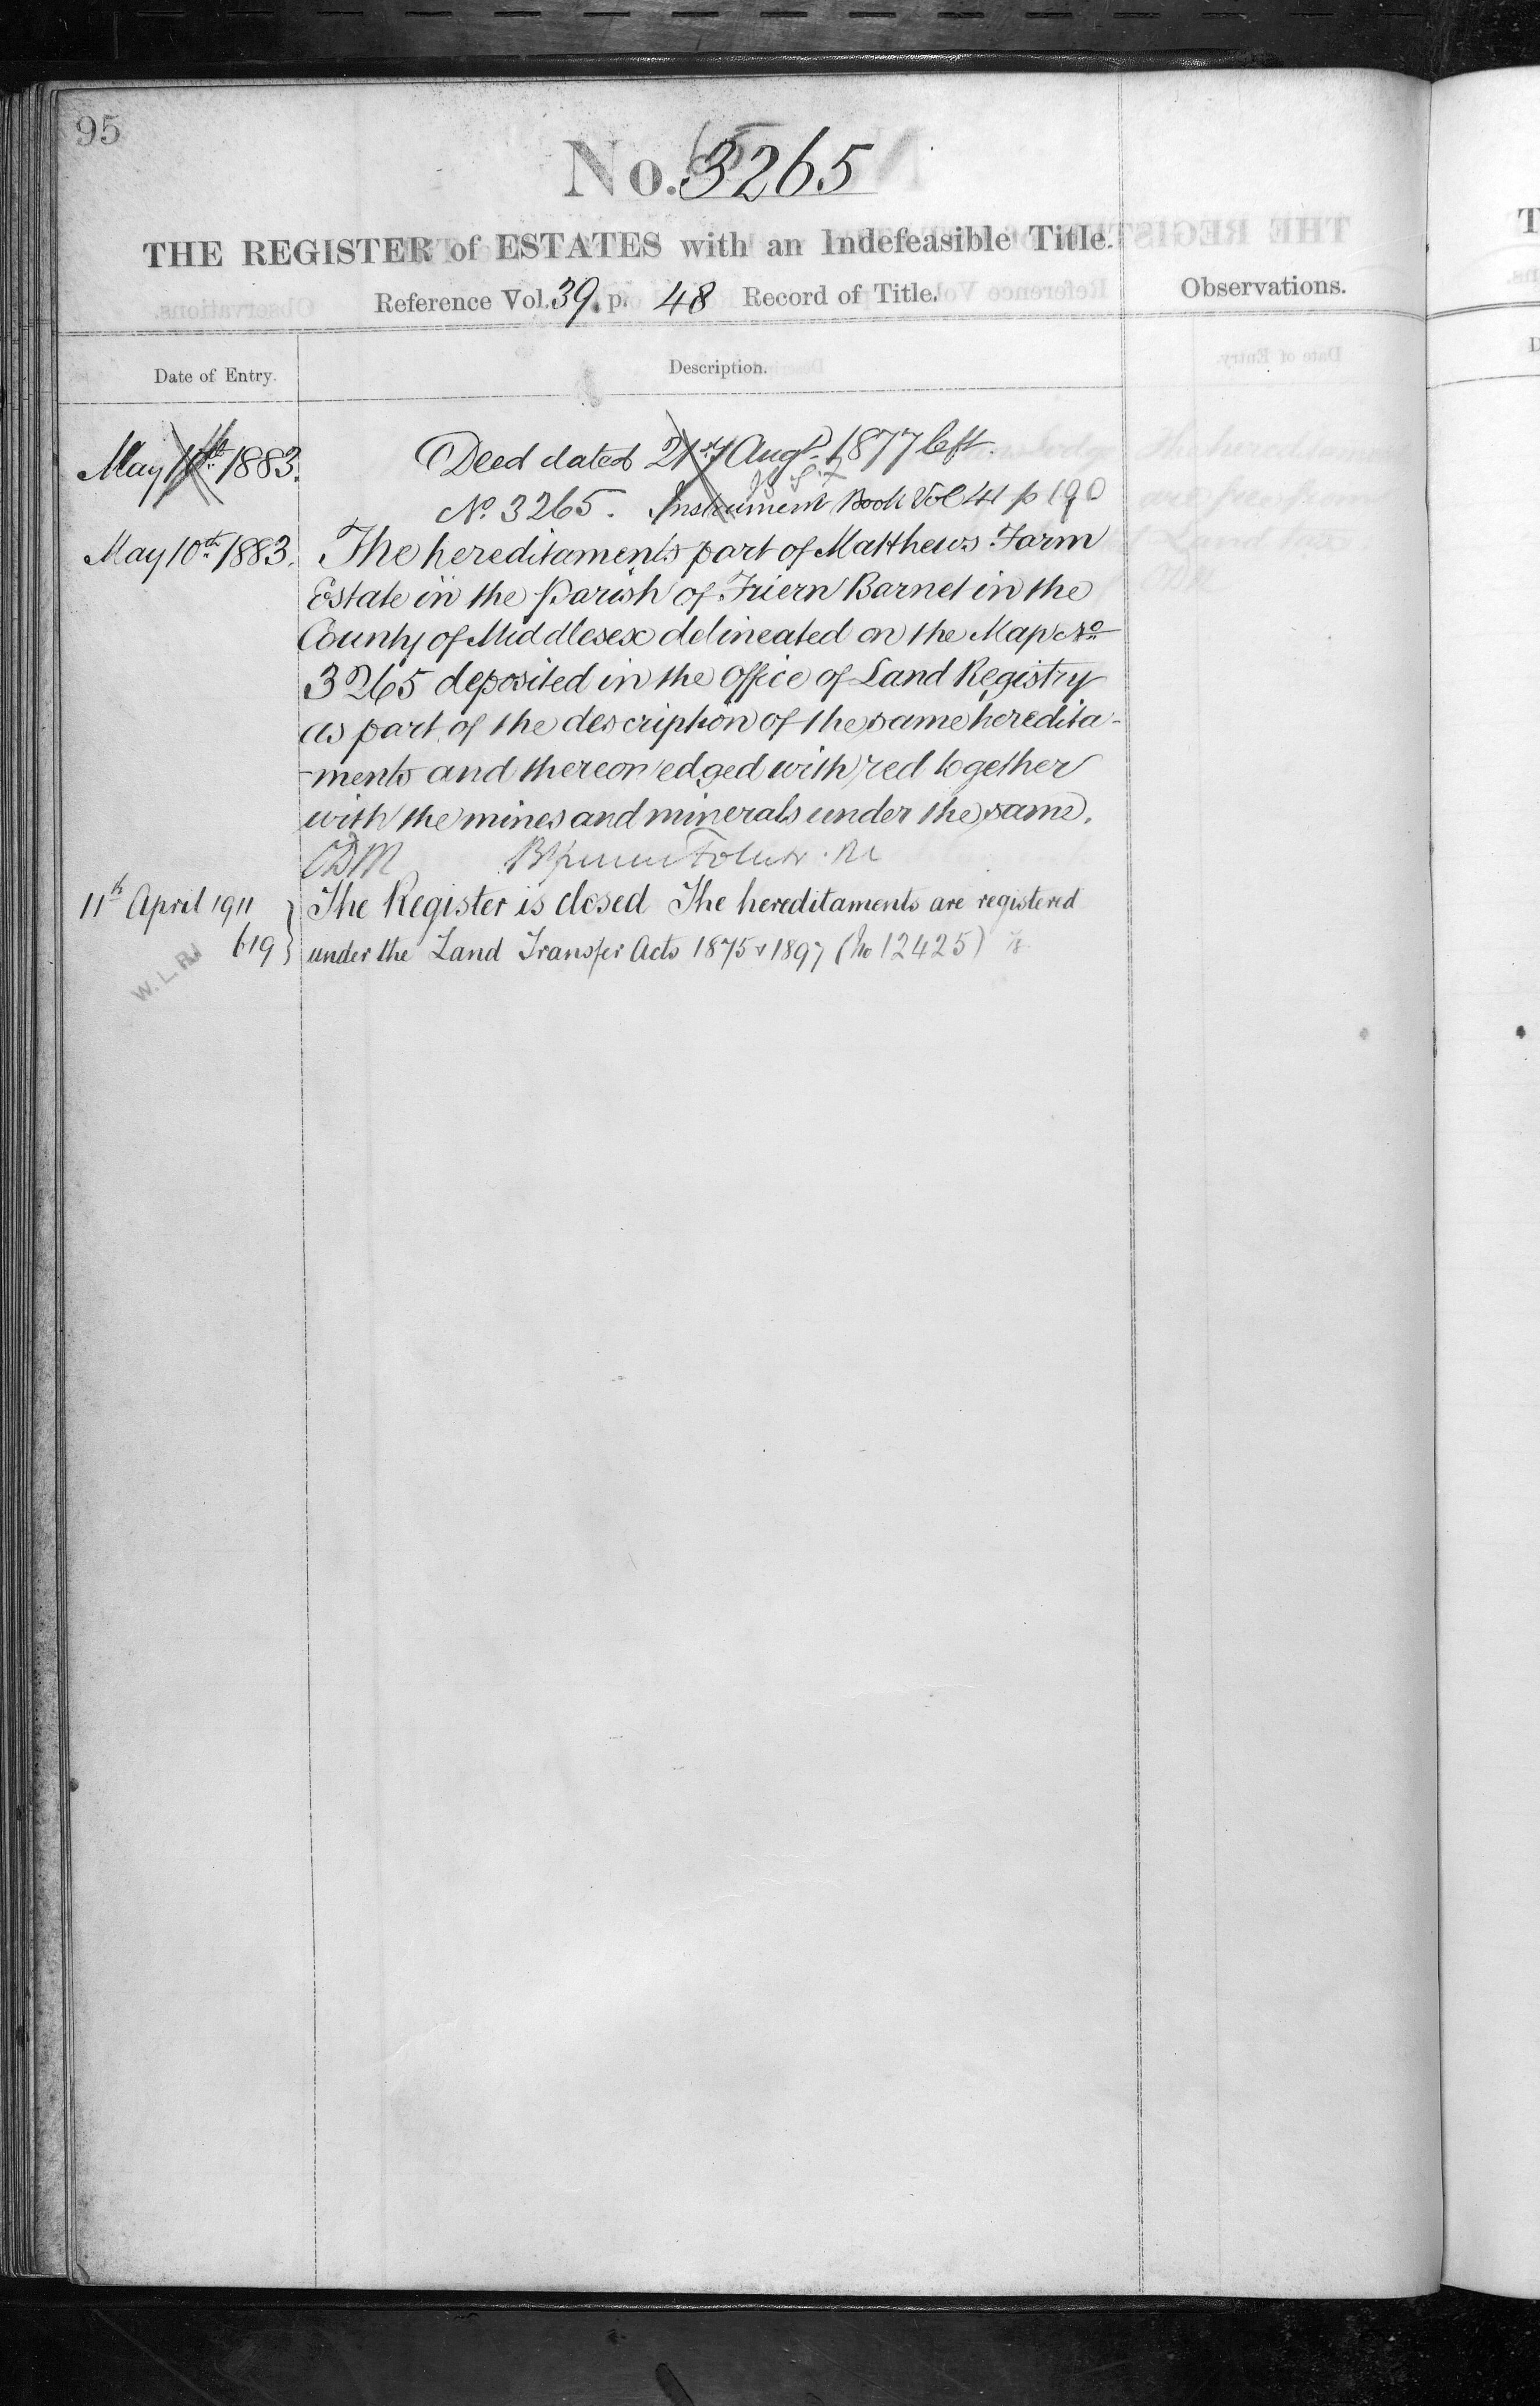 95
No. 3265
THE REGISTER of ESTATES with an Indefeasible Title.
Reference Vol. 39. p. 48 Record of Title.
Observations.
Date of Entry.
Description.
May 11th 1883.
Deed dated 21st Augt. 1877 left.
No. 3265. Instrument Book Vol 41 p 190
May 10th 1883.
The hereditaments part of Matthews Farm
Estate in the Parish of Friern Barnet in the
County of Middlesex delineated on the Map No
3265 deposited in the Office of Land Registry
as part of the description of the same heredita-
-ments and thereon edged with red together
with the mines and minerals under the same.
11th April 1911
619
The Register is closed The hereditaments are registered
under the Land Transfer Acts 1875 & 1897 (No 12425)
W. L. R.